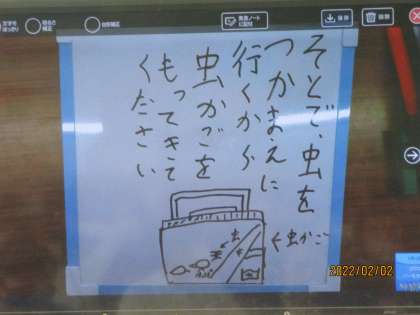 そとで、虫を
つかまえに
行くから
虫かごを
もってきて
ください
虫
←虫かご
保存
2022/02/02